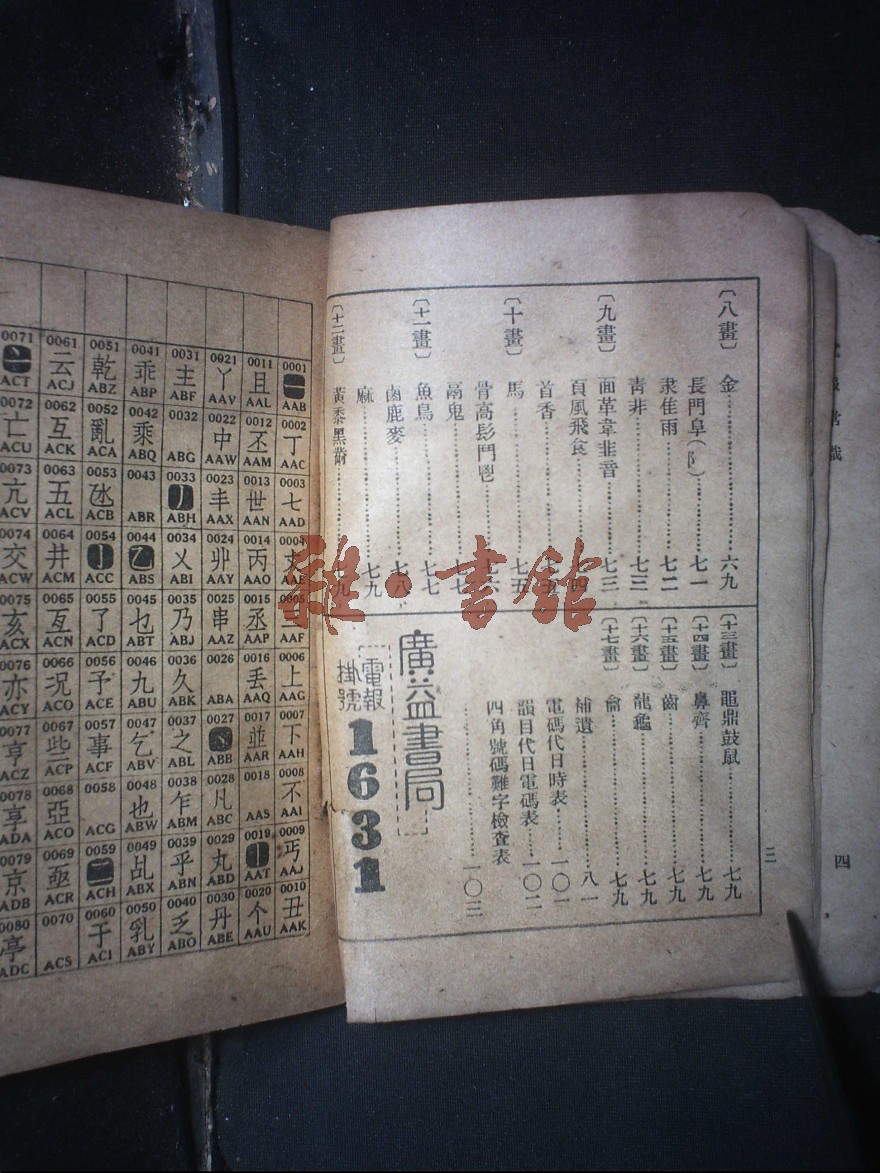 〔八畫〕金…………六九
長門阜(阝)…………七一
隶隹雨…………七二
青非…………七三
〔九畫〕面革韋韭音…………七三
頁風飛食…………四
首香…………
〔十畫〕馬…………七五
骨高髟鬥鬯…………六
鬲鬼…………七七
〔十一畫〕魚鳥…………七七
鹵鹿麥…………七八
麻…………七九
〔十二畫〕黃黍黑黹…………九
〔十三畫〕黽鼎鼓鼠…………七九
〔十四畫〕鼻齊…………七九
〔十五畫〕齒…………七九
〔十六畫〕龍龜…………七九
〔十七畫〕龠…………七九
補遺…………八一
電碼代日時表…………一〇一
韻目代日電碼表…………一〇二
四角號碼難字檢查表
…………一〇三
廣益書局
電報
掛號
1631
三
四
雜·書館
0071 0061 0051 0041 0031 0021 0011 0001
亠 云 乾 乖 主 丫 且 一
ACT ACJ ABZ ABP ABF AAV AAL AAB
0072 0062 0052 0042 0032 0022 0012 0002
亡 互 亂 乘 中 丕 丁
ACU ACK ACA ABQ ABG AAW AAM AAC
0073 0063 0053 0043 0033 0023 0013 0003
亢 五 丿 丰 世 七
ACV ACL ACB ABR ABH AAX AAN AAD
0074 0064 0054 0044 0034 0024 0014 0004
交 井 亅 乙 乂 丱 丙 丈
ACW ACM ACC ABS ABI AAY AAO AAE
0075 0065 0055 0045 0035 0025 0015 0005
亥 亙 了 乜 乃 串 丞
ACX ACN ACD ABT ABJ AAZ AAP AAF
0076 0066 0056 0046 0036 0026 0016 0006
亦 况 予 九 久 丢 上
ACY ACO ACE ABU ABK ABA AAQ AAG
0077 0067 0057 0047 0037 0027 0017 0007
亨 些 事 乞 之 丶 並 下
ACZ ACP ACF ABV ABL ABB AAR AAH
0078 0068 0058 0048 0038 0028 0018 0008
享 亞 也 乍 凡 不
ADA ACQ ACG ABW ABM ABC AAS AAI
0079 0069 0059 0049 0039 0029 0019 0009
京 亟 二 乩 乎 丸 丨 丏
ADB ACR ACH ABX ABN ABD AAT AAJ
0080 0070 0060 0050 0040 0030 0020 0010
亭 于 乳 乏 丹 个 丑
ADC ACS ACI ABY ABO ABE AAU AAK